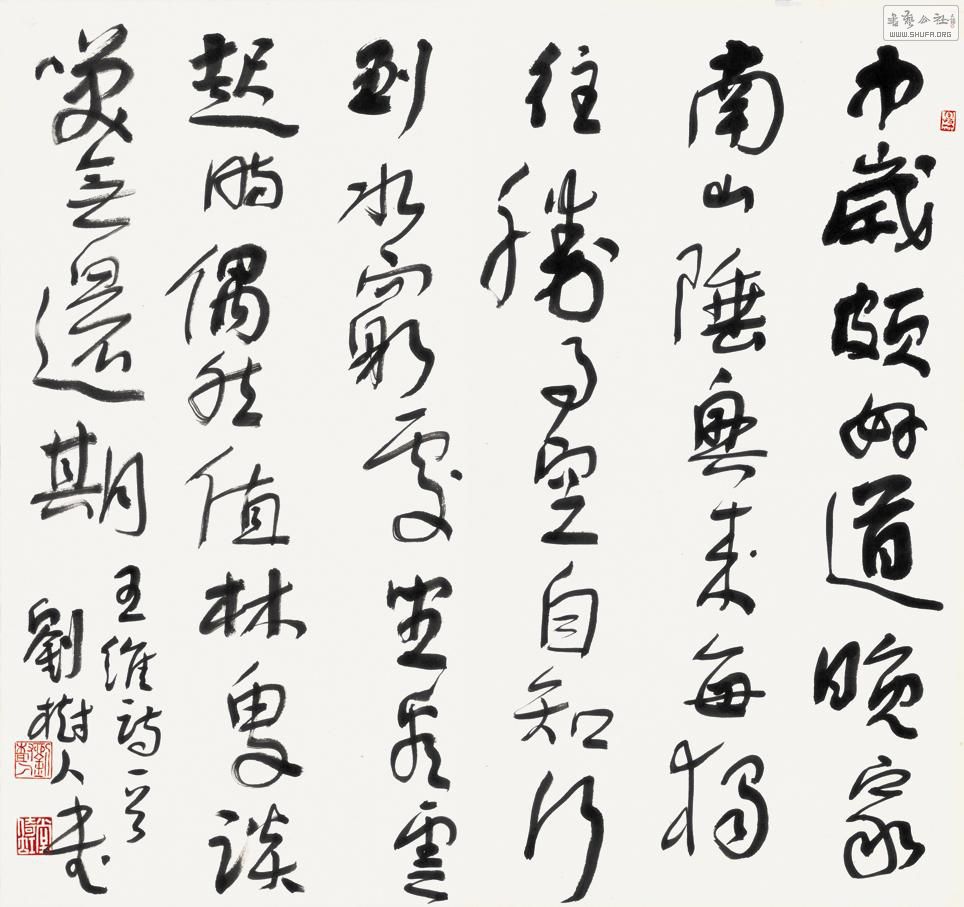 中歲頗好道晚家
南山陲興來每獨
往勝事空自知行
到水窮處坐看雲
起時偶然值林叟談
笑無還期
王維詩一首
劉樹人書
書藝公社
WWW.SHUFA.ORG